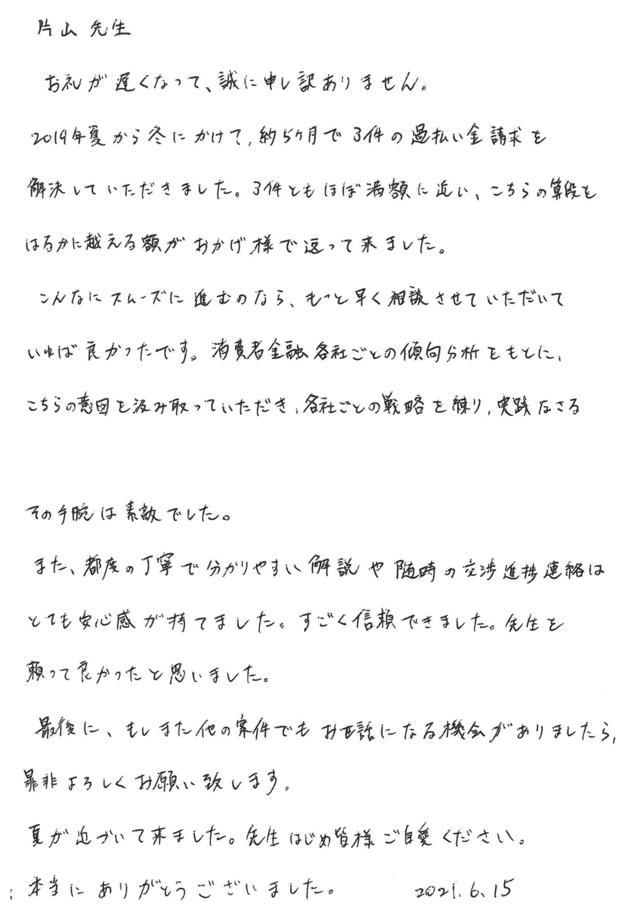 片山先生
お礼が遅くなって、誠に申し訳ありません。
2019年夏から冬にかけて、約5ヶ月で3件の過払い金請求を
解決していただきました。3件ともほぼ満額に近い、こちらの算段を
はるかに越える額がおかげ様で返って来ました。
こんなにスムーズに進むのなら、もっと早く相談させていただいて
いれば良かったです。消費者金融各社ごとの傾向分析をもとに、
こちらの意図を汲み取っていただき、各社ごとの戦略を練り、実践なさる
その手腕は素敵でした。
また、都度の丁寧で分かりやすい解説や随時の交渉進捗連絡は
とても安心感が持てました。すごく信頼できました。先生を
頼って良かったと思いました。
最後に、もしまた他の案件でもお世話になる機会がありましたら、
是非よろしくお願い致します。
夏が近づいて来ました。先生はじめ皆様ご自愛ください。
本当にありがとうございました。 2021.6.15